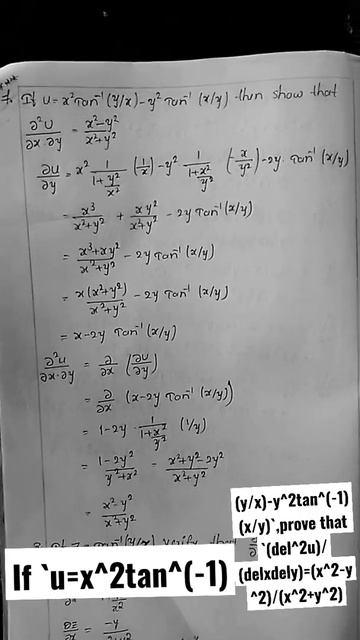 7. If u = x² tan⁻¹ (y/x) - y² tan⁻¹ (x/y) then show that
∂²u/∂x·∂y = x²-y²/x²+y²
∂u/∂y = x² 1/1+y²/x² (1/x) - y² 1/1+x²/y² (-x/y²) - 2y tan⁻¹ (x/y)
= x³/x²+y² + xy²/x²+y² - 2y tan⁻¹ (x/y)
= x³+xy²/x²+y² - 2y tan⁻¹ (x/y)
= x(x²+y²)/x²+y² - 2y tan⁻¹ (x/y)
= x - 2y tan⁻¹ (x/y)
∂²u/∂x·∂y = ∂/∂x (∂u/∂y)
= ∂/∂x (x - 2y tan⁻¹ (x/y))
= 1 - 2y · 1/1+x²/y² (1/y)
= 1-2y²/y²+x² = x²+y²-2y²/x²+y²
= x²-y²/x²+y²
If `u=x^2tan^(-1)
(y/x)-y^2tan^(-1)
(x/y)`,prove that
`(del^2u)/
(delxdely)=(x^2-y
^2)/(x^2+y^2)